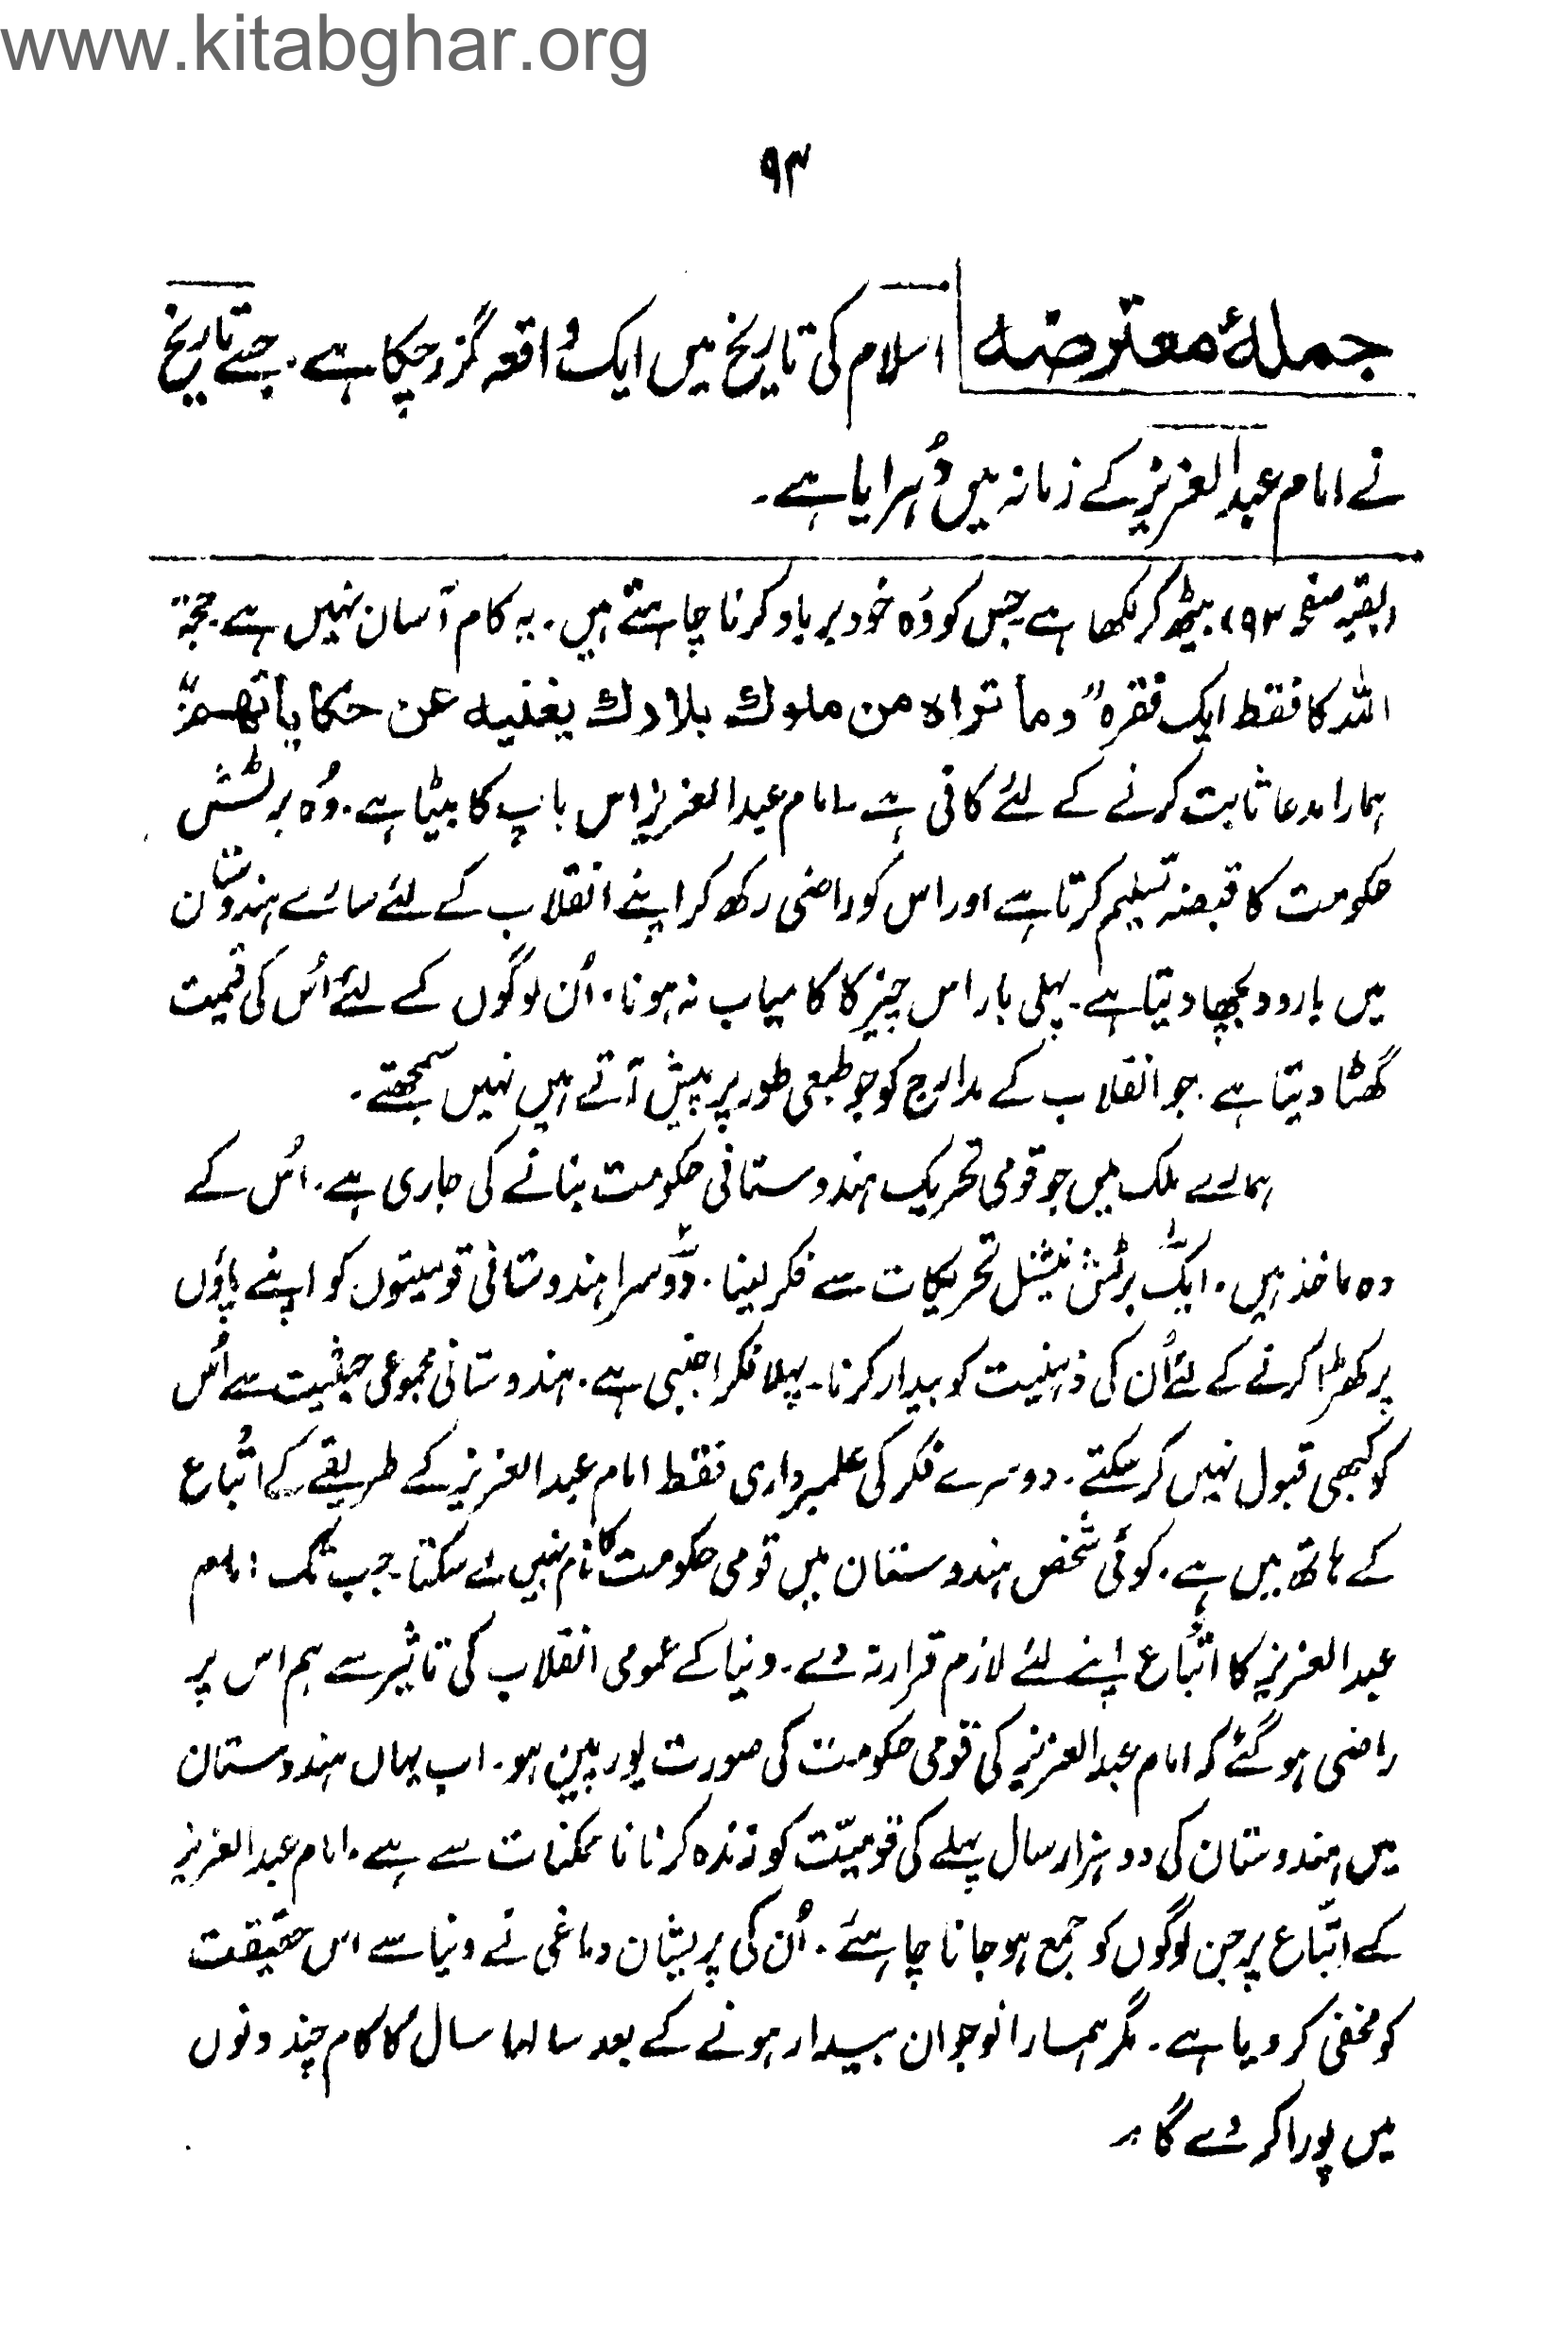 www.kitabghar.org
۹۴
جملۂ معترضہ اسلام کی تاریخ میں ایک واقعہ گزر چکا ہے۔ جسے تاریخ
نے امام عبدالعزیز کے زمانہ میں دُہرایا ہے۔
(بقیہ صفحہ ۹۳) بیٹھ کر لکھا ہے۔ جس کو وُہ خود برباد کرنا چاہتے ہیں۔ یہ کام آسان نہیں ہے۔ حجۃ
اللہ کا فقط ایک فقرہ "وما تراہ من ملوك بلادك یغنیہ عن حکایاتھم"
ہمارا مدعا ثابت کرنے کے لئے کافی ہے۔ امام عبدالعزیز اس باپ کا بیٹا ہے۔ وُہ برٹش
حکومت کا قبضہ تسلیم کرتا ہے اور اس کو راضی رکھ کر اپنے انقلاب کے لئے سارے ہندوستان
میں بارود بچھا دیتا ہے۔ پہلی بار اس چیز کا کامیاب نہ ہونا۔ اُن لوگوں کے لئے اُس کی قیمت
گھٹا دیتا ہے۔ جو انقلاب کے مدارج کو جو طبعی طور پر پیش آتے ہیں نہیں سمجھتے۔
ہمارے ملک میں جو قومی تحریک ہندوستانی حکومت بنانے کی جاری ہے۔ اُس کے
دو ماخذ ہیں۔ ایک برٹش نیشنل تحریکات سے فکر لینا۔ دُوسرا ہندوستانی قومیتوں کو اپنے پاؤں
پر کھڑا کرنے کے لئے اُن کی ذہنیت کو بیدار کرنا۔ پہلا فکر اجنبی ہے۔ ہندوستانی مجموعی حیثیت سے اُس
کو کبھی قبول نہیں کر سکتے۔ دوسرے فکر کی علمبرداری فقط امام عبدالعزیز کے طریقے کے اتباع
کے ہاتھ میں ہے۔ کوئی شخص ہندوستان میں قومی حکومت کا نام نہیں لے سکتا۔ جب تک امام
عبدالعزیز کا اتباع اپنے لئے لازم قرار نہ دے۔ دنیا کے عمومی انقلاب کی تاثیر سے ہم اس پر
راضی ہو گئے کہ امام عبدالعزیز کی قومی حکومت کی صورت یورپین ہو۔ اب یہاں ہندوستان
میں ہندوستان کی دو ہزار سال پہلے کی قومیّت کو زندہ کرنا ناممکنات سے ہے۔ امام عبدالعزیز
کے اتّباع پر جن لوگوں کو جمع ہو جانا چاہئے۔ اُن کی پریشان دماغی نے دنیا سے اس حقیقت
کو مخفی کر دیا ہے۔ مگر ہمارا نوجوان بیدار ہونے کے بعد سالہا سال کا کام چند دنوں
میں پورا کر دے گا۔